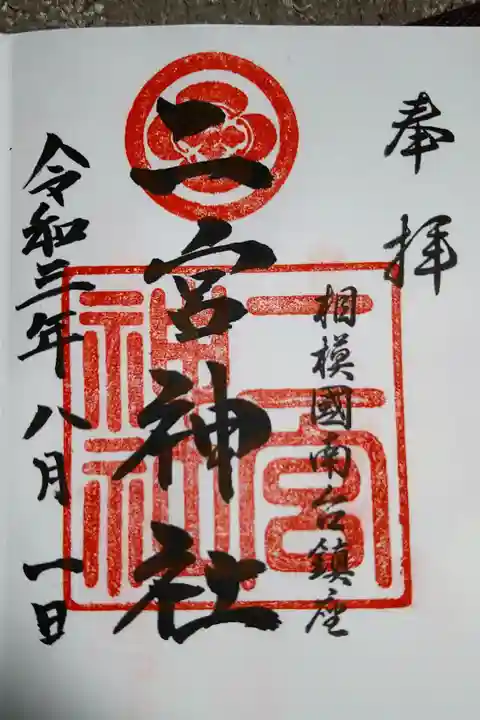 奉拝
相模國南台鎮座
二宮神社
二宮神社
令和三年八月一日